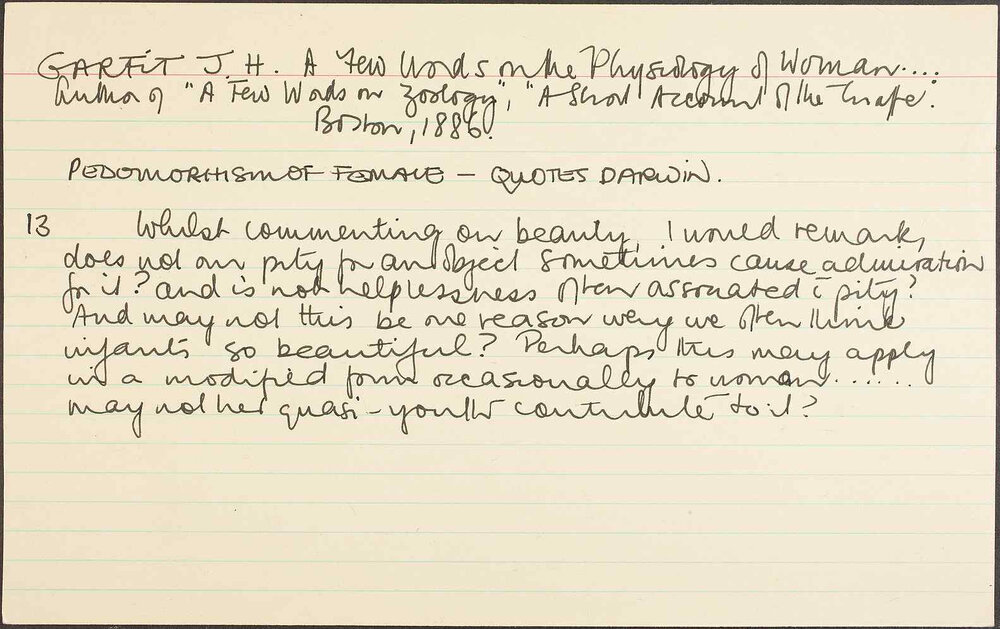 GARFIT J. H. A Few Words on the Physiology of Woman....
Author of "A Few Words on Zoology", "A Short Account of the
Boston, 1886.
PEDOMORPHISM OF FEMALE – QUOTES DARWIN.
13 Whilst commenting on beauty, I would remark,
does not our pity for an object sometimes cause admiration
for it? and is not helplessness often associated c̄ pity?
And may not this be one reason why we often think
infants so beautiful? Perhaps this may apply
in a modified form occasionally to woman.......
may not her quasi-youth contribute to it?